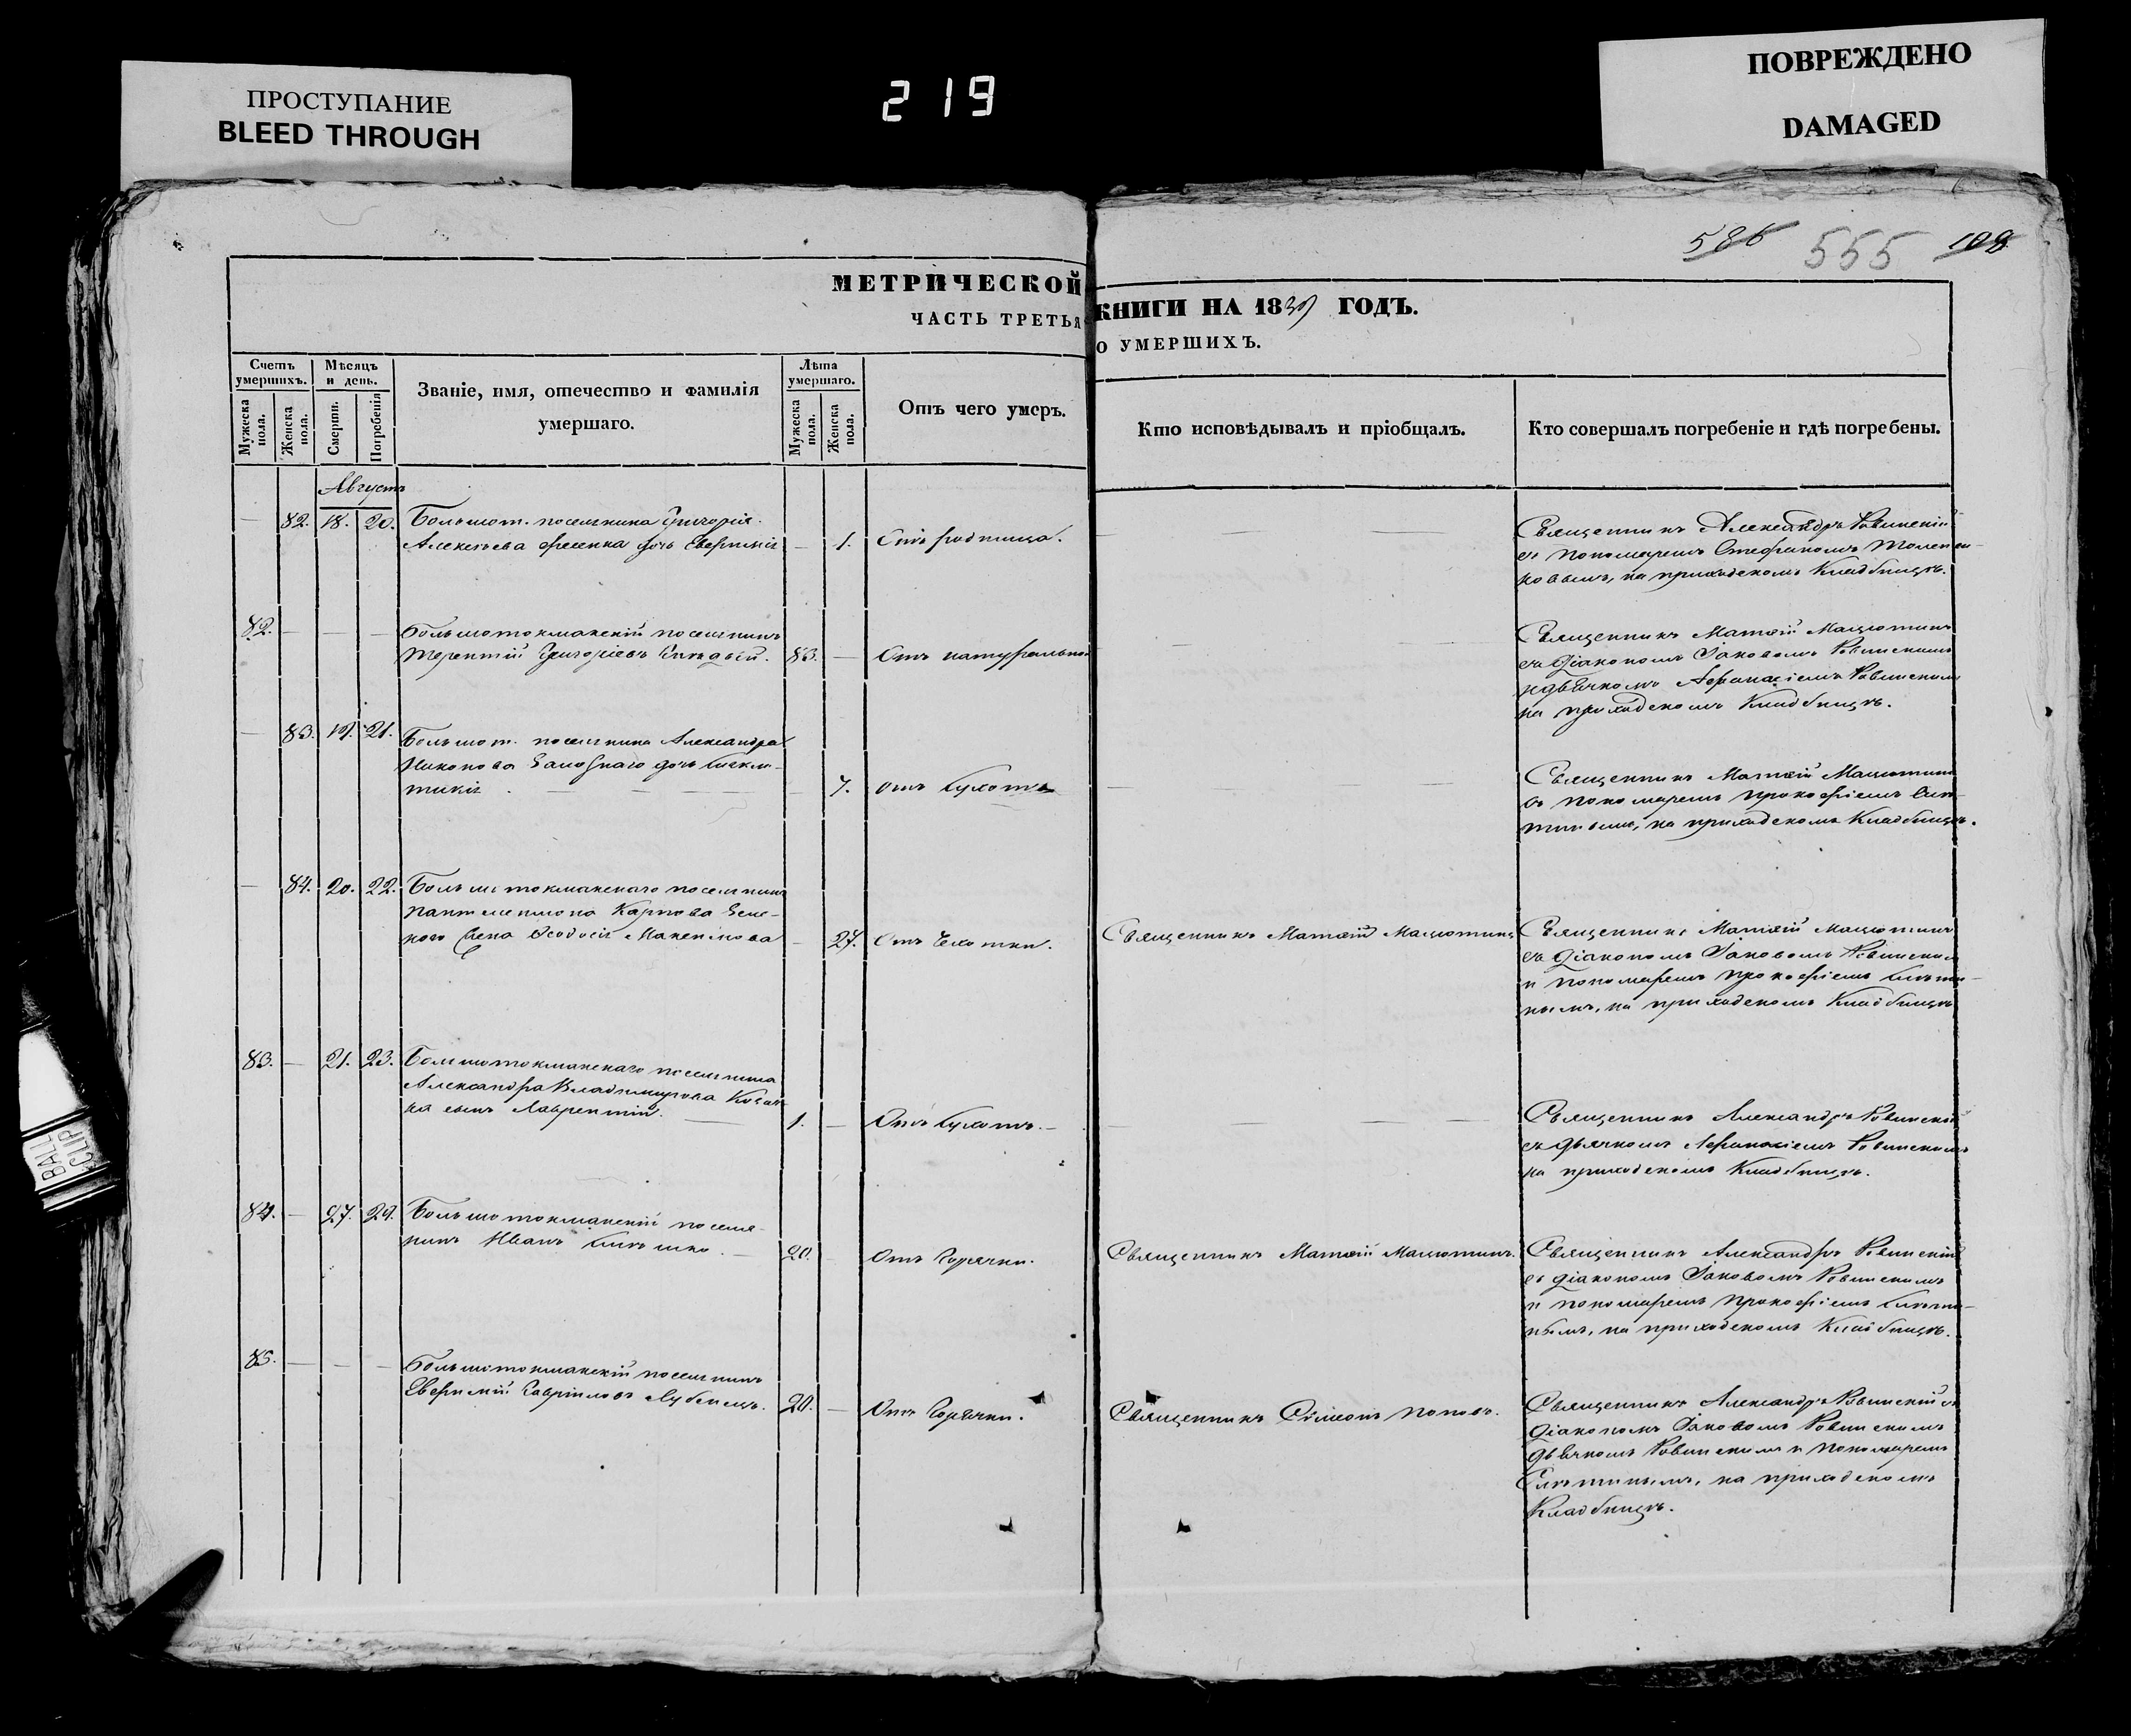 ПРОСТУПАНИЕ
BLEED THROUGH
219
ПОВРЕЖДЕНО
DAMAGED
586 555 108
МЕТРИЧЕСКОЙ КНИГИ НА 1839 ГОДЪ.
ЧАСТЬ ТРЕТЬЯ О УМЕРШИХЪ.
Счетъ умершихъ.
Мужеска пола.
Женска пола.
Мѣсяцъ и день.
Смерти.
Погребенія
Званіе, имя, отечество и фамилія
умершаго.
Лѣта умершаго.
Мужеска пола.
Женска пола.
Отъ чего умеръ.
Кто исповѣдывалъ и пріобщалъ.
Кто совершалъ погребеніе и гдѣ погребены.
Августъ
— 82. 18. 20. Большот. поселянина Григорія
Алексѣева дочь — 1. Отъ родимца.
Священникъ Александръ Ровинскій
съ пономаремъ Стефаномъ
на приходскомъ Кладбищѣ.
82. — — — Большотокманскій поселянинъ
Терентій Григоріевъ 83. — Отъ натуральной
Священникъ Матѳій Мацютинъ
съ Діакономъ Іаковомъ Ровинскимъ
и дьячкомъ Афанасіемъ Ровинскимъ
на приходскомъ Кладбищѣ.
— 83. 19. 21. Большот. поселянина Александра
Никонова дочь
— 7. отъ сухотъ
Священникъ Матѳій Мацютинъ
съ пономаремъ Прокофіемъ
на приходскомъ Кладбищѣ.
— 84. 20. 22. Большотокманскаго поселянина
Пантелеимона Карпова
жена Ѳеодосія Максимова — 27. Отъ чахотки.
Священникъ Матѳій Мацютинъ
Священникъ Матѳій Мацютинъ
съ Діакономъ Іаковомъ Ровинскимъ
и пономаремъ Прокофіемъ
на приходскомъ Кладбищѣ
83. — 21. 23. Большотокманскаго поселянина
Александра Владимирова
сынъ Лаврентій. 1. — Отъ сухотъ.
Священникъ Александръ Ровинскій
съ дьячкомъ Афанасіемъ Ровинскимъ
на приходскомъ Кладбищѣ.
84. — 27. 29. Большотокманскій поселя-
нинъ Иванъ 20. — Отъ горячки.
Священникъ Матѳій Мацютинъ.
Священникъ Александръ Ровинскій
съ діакономъ Іаковомъ Ровинскимъ
и пономаремъ Прокофіемъ
на приходскомъ Кладбищѣ.
85. — — — Большотокманскій поселянинъ
Евфимій Гавриловъ Лубенецъ. 20. — Отъ горячки.
Священникъ Сѵмеонъ Поповъ.
Священникъ Александръ Ровинскій съ
діакономъ Іаковомъ Ровинскимъ
дьячкомъ Ровинскимъ и пономаремъ
на приходскомъ
Кладбищѣ.
BALL
CLIP